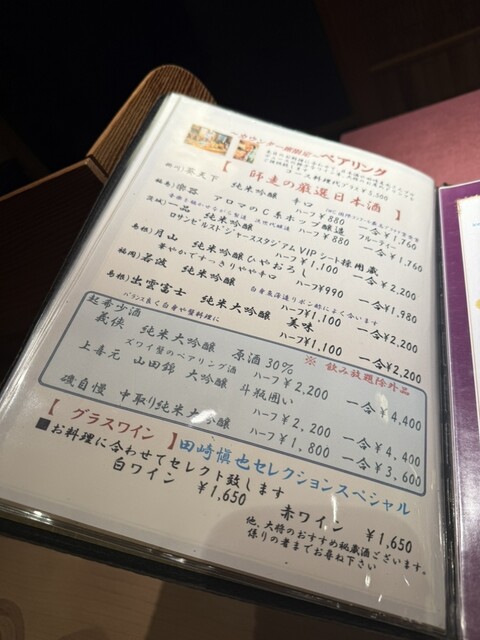 ～カウンター席限定～ペアリング
コース料理代プラス¥5,500
【 師走の厳選日本酒 】
天下 純米吟醸 辛口
ハーフ¥880 一合¥1,760
楽器 アロマのC系ホップ醸造 フルーティー
ハーフ¥880 一合¥1,760
茨城）一品 純米吟醸
ロサンゼルスドジャーススタジアムVIPシート採用蔵
ハーフ¥1,100 一合¥2,200
島根）月山 純米吟醸ひやおろし
華やかですっきりやや辛口 ハーフ¥990 一合¥1,980
福岡）若波 純米吟醸
ハーフ¥1,100 一合¥2,200
島根）出雲富士 純米大吟醸 美味
バランス良く白身や蟹料理に ハーフ¥1,100 一合¥2,200
超希少酒 ※ 飲み放題除外品
義侠 純米大吟醸 原酒30%
ズワイ蟹のペアリング酒 ハーフ¥2,200 一合¥4,400
上喜元 山田錦 大吟醸 斗瓶囲い
ハーフ¥2,200 一合¥4,400
磯自慢 中取り純米大吟醸
ハーフ¥1,800 一合¥3,600
【 グラスワイン 】田崎慎也セレクションスペシャル
■お料理に合わせてセレクト致します
白ワイン ¥1,650
赤ワイン ¥1,650
他、大将のおすすめ秘蔵酒ございます。
係りの者までお尋ね下さい